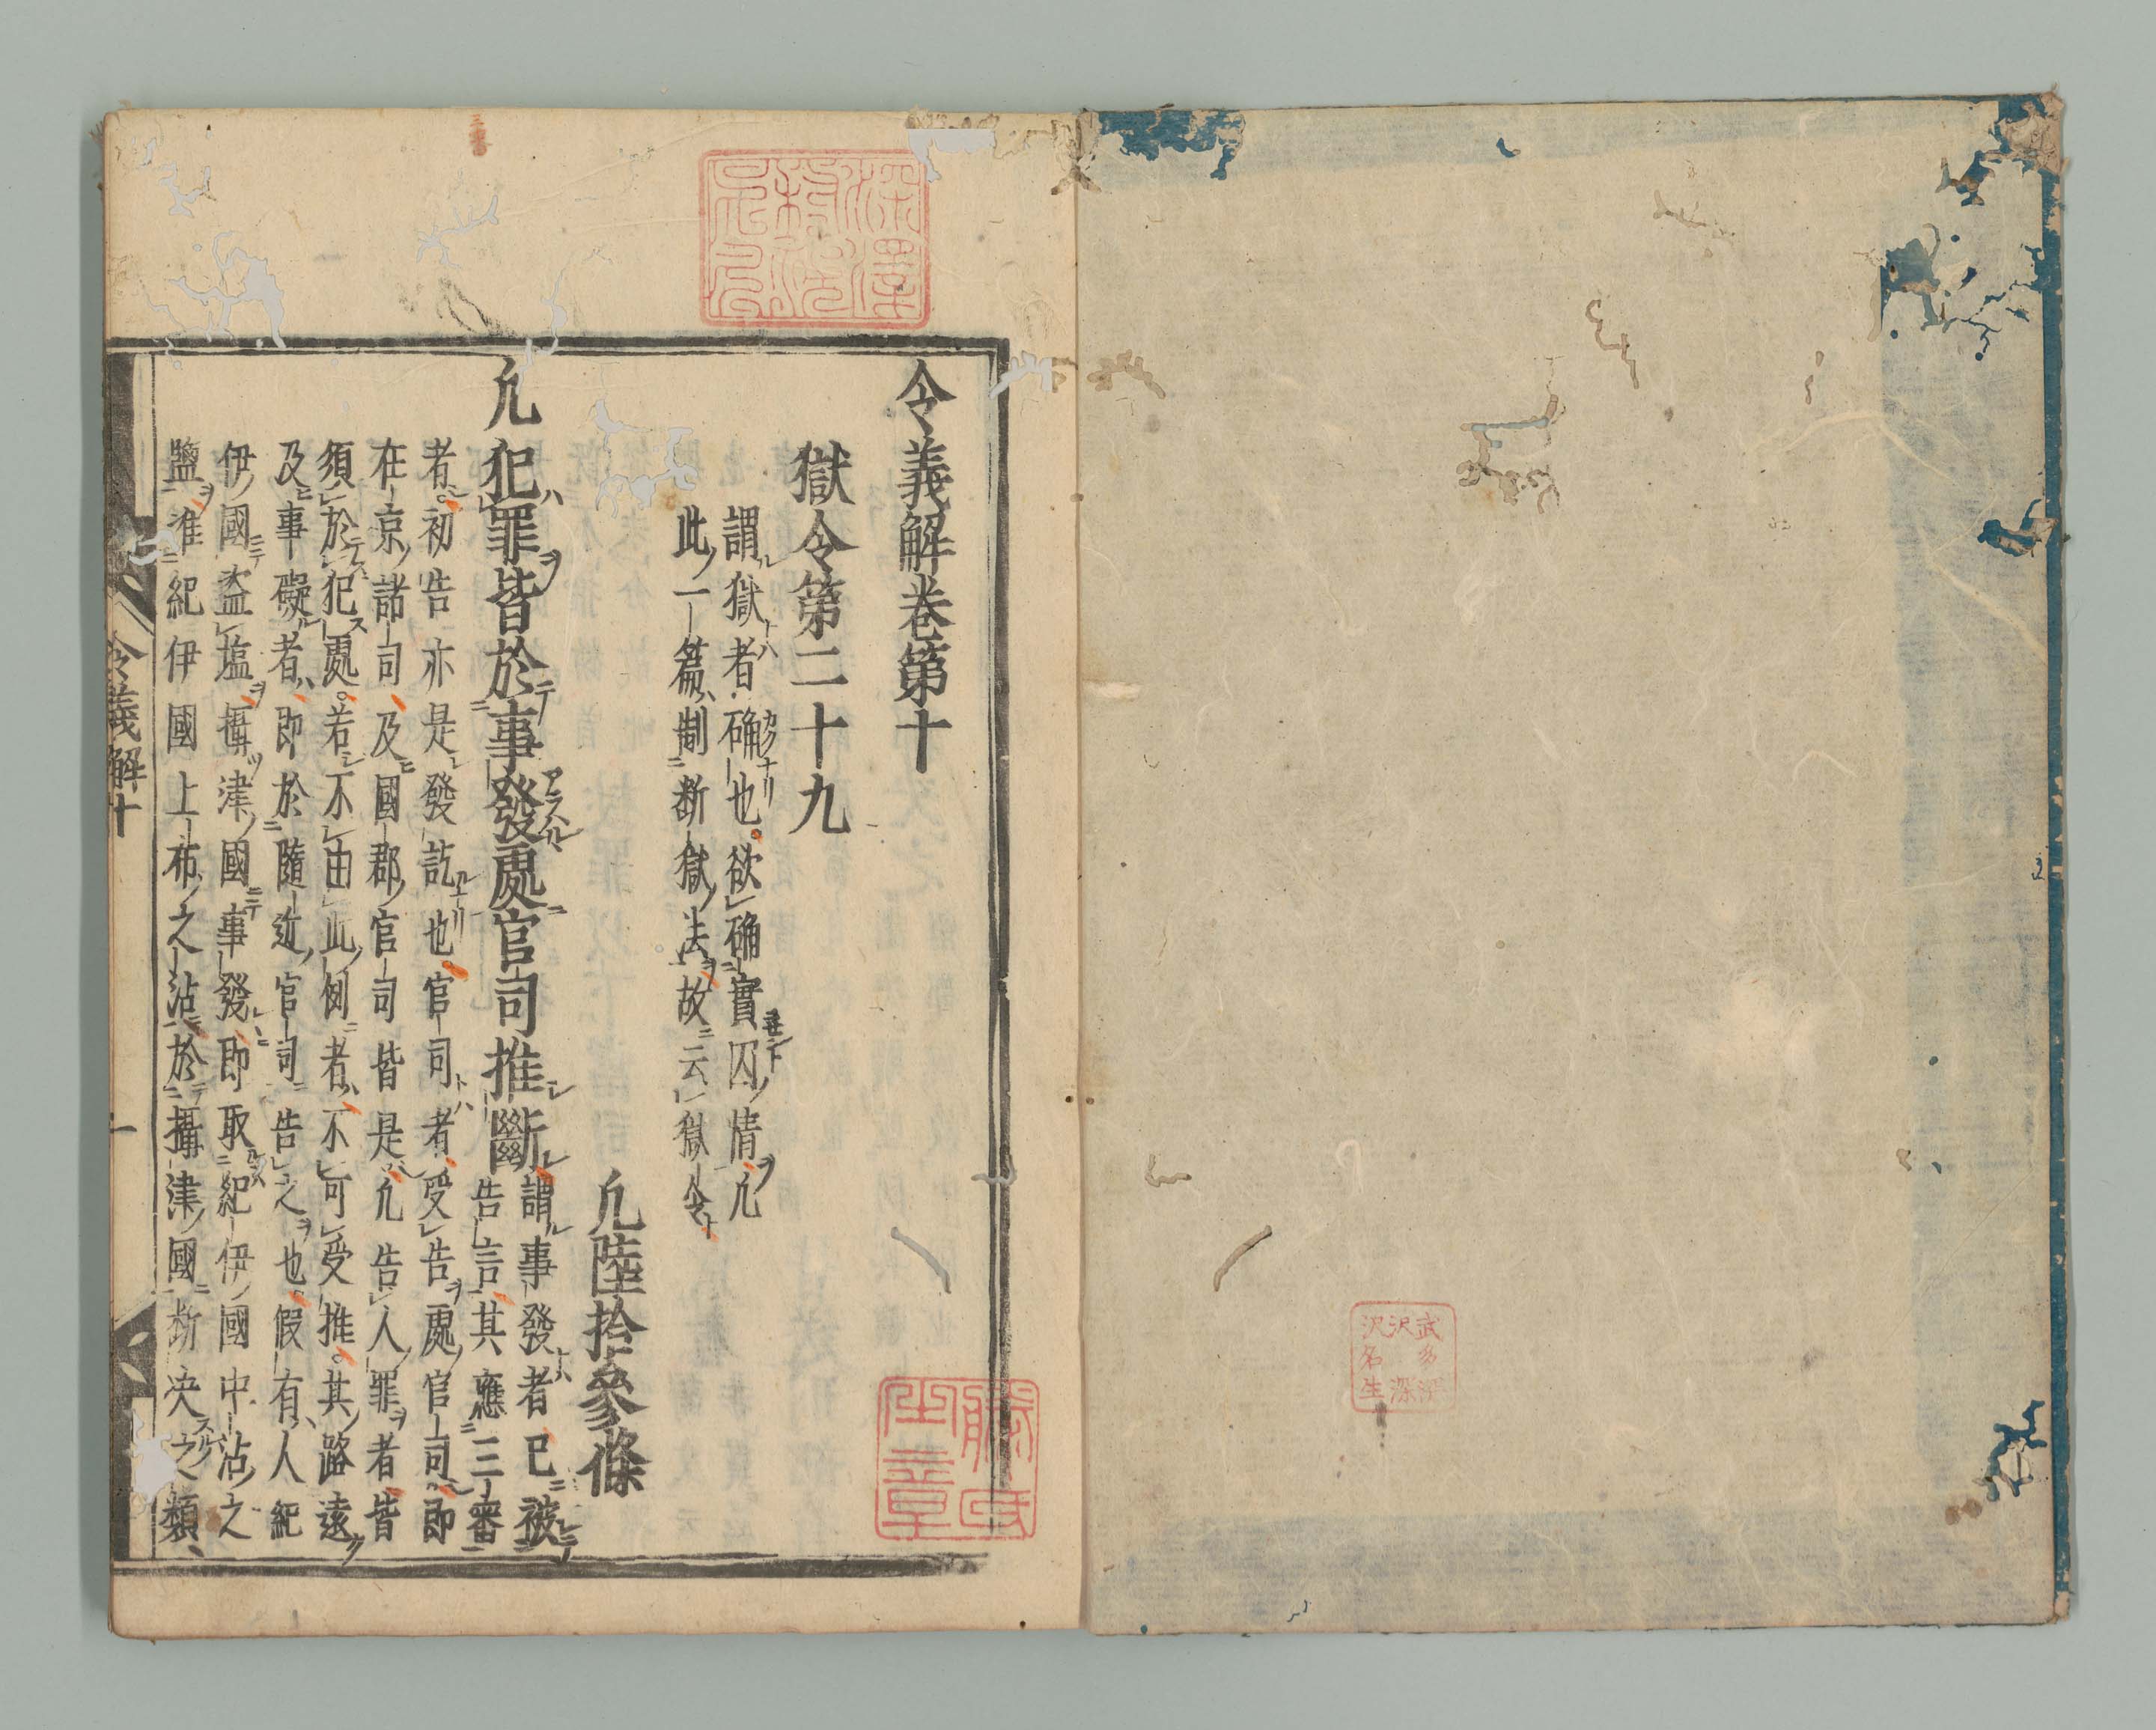 令義解卷第十
獄令第二十九
謂獄者确也欲确實囚情凢
此一篇制斷獄法故云獄令
凢陸拾參條
凢犯罪皆於事發處官司推斷
謂事發者已被
告言其應三審
者初告亦是發訖也官司者受告處官司即
在京諸司及國郡官司皆是凢告人罪者皆
須於犯處若不由此例者不可受推其路遠
及事礙者即於隨近官司告之也假有人紀
伊國盗塩攝津國事發即取紀伊國中沽之
鹽准紀伊國上布之沽於攝津國斷决之類
令義解十
一
武多深
沢深
沢名生